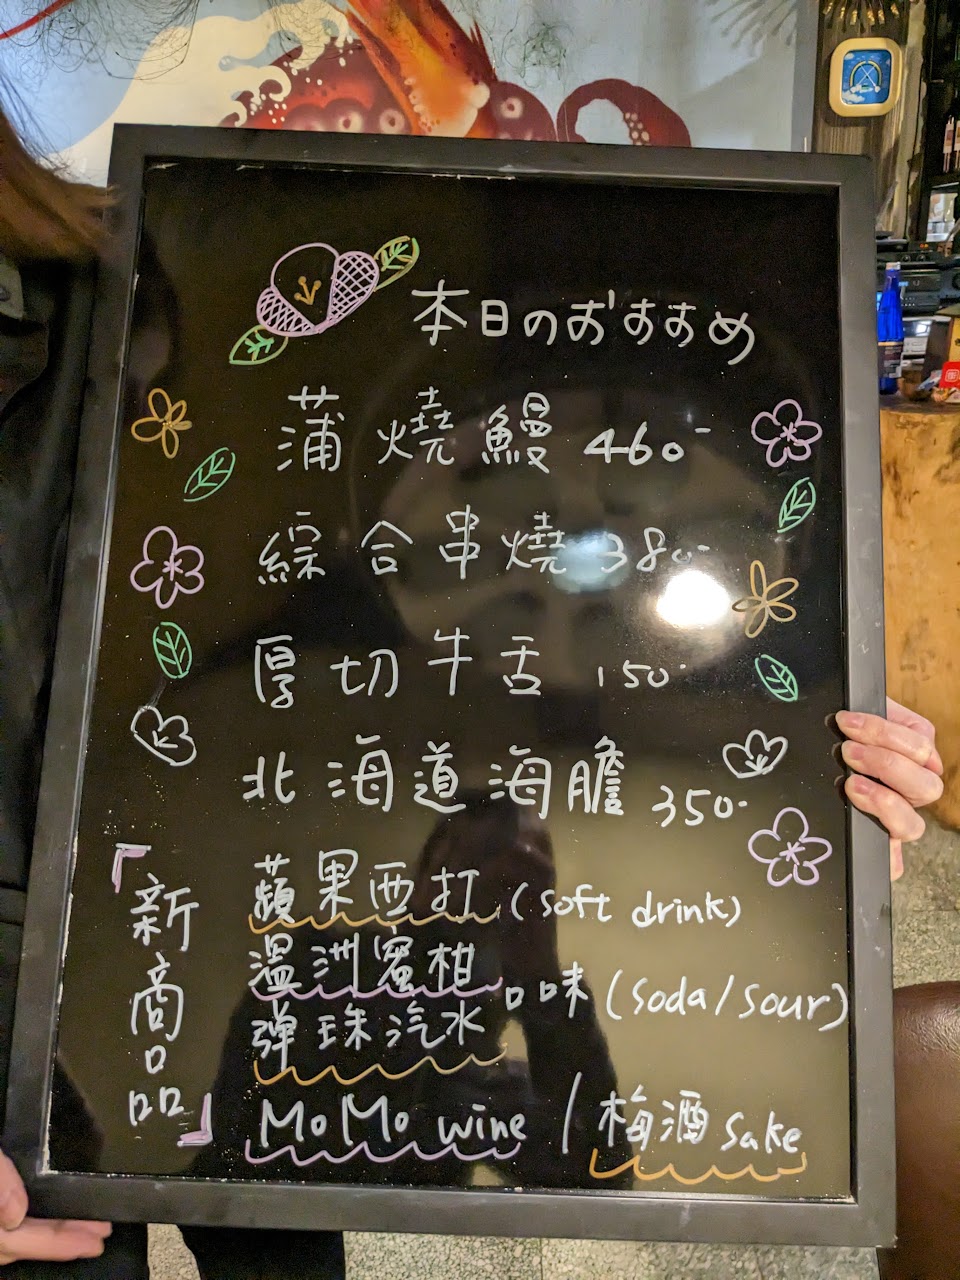 本日のおすすめ
蒲燒鰻 460-
綜合串燒 380-
厚切牛舌 150-
北海道海膽 350-
『新商品』
蘋果西打 (soft drink)
溫洲蜜柑
口味 (soda/sour)
彈珠汽水
MoMo wine / 梅酒 sake